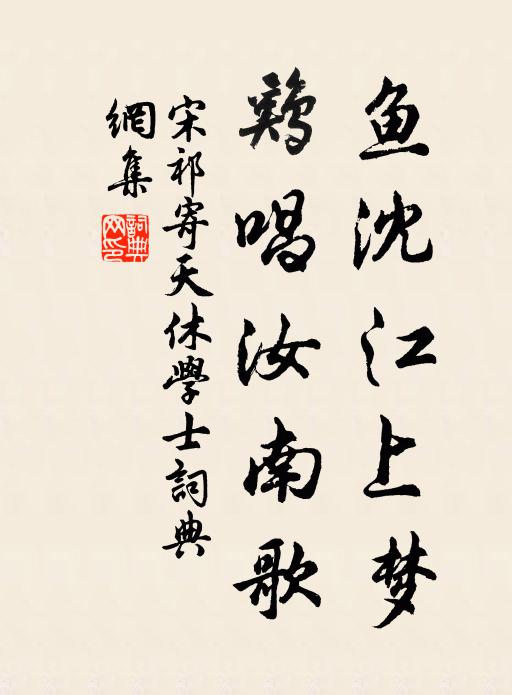 鱼沈江上梦
鷄唱汝南歌
宋祁寄天休學士詞典
網集
詞典
网印